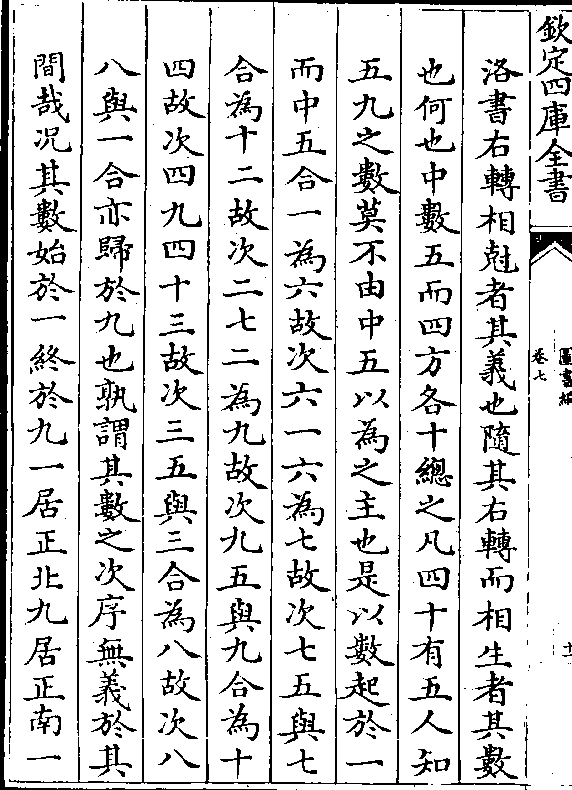 欽定四庫全書
圖書編
卷七
十一
洛書右轉相尅者其義也隨其右轉而相生者其數
也何也中數五而四方各十總之凡四十有五人知
五九之數莫不由中五以為之主也是以數起於一
而中五合一為六故次六一六為七故次七五與七
合為十二故次二七二為九故次九五與九合為十
四故次四九四十三故次三五與三合為八故次八
八與一合亦歸於九也孰謂其數之次序無義於其
間哉况其數始於一終於九一居正北九居正南一